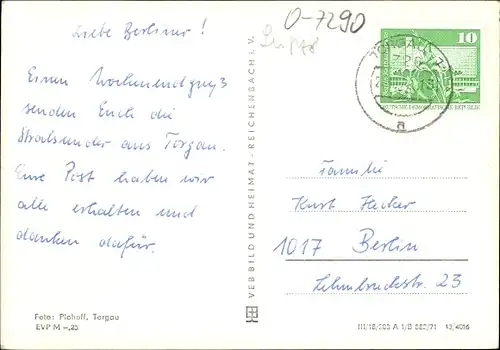 Liebe Berliner!
Einen Wochenendgruß
senden Euch die
Stralsunder aus Torgau.
Eure Post haben wir
alle erhalten und
danken dafür.
Foto: Plohoff, Torgau
EVP M –,25
VEB BILD UND HEIMAT · REICHENBACH I. V.
0-7290
TORGAU
a
10
DEUTSCHE DEMOKRATISCHE REPUBLIK
Familie
Kurt Hecker
1017 Berlin
23
III/18/203 A 1/B 682/71 13/4016